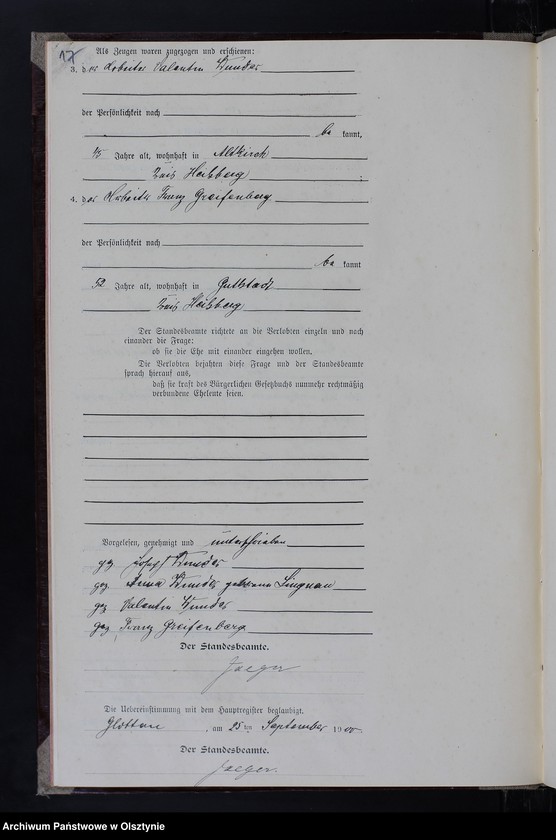 17
Als Zeugen waren zugezogen und erschienen:
3. der Arbeiter Valentin Wunder
der Persönlichkeit nach
be kannt,
45 Jahre alt, wohnhaft in Altkirch
Kreis Heilsberg ;
4. der Arbeiter Franz Greifenberg
der Persönlichkeit nach
be kannt
52 Jahre alt, wohnhaft in Guttstadt
Kreis Heilsberg
Der Standesbeamte richtete an die Verlobten einzeln und nach
einander die Frage:
ob sie die Ehe mit einander eingehen wollen.
Die Verlobten bejahten diese Frage und der Standesbeamte
sprach hierauf aus,
daß sie kraft des Bürgerlichen Gesetzbuchs nunmehr rechtmäßig
verbundene Eheleute seien.
Vorgelesen, genehmigt und unterschrieben
gez Josef Wunder
gez Anna Wunder geborene Lingnau
gez Valentin Wunder
gez Franz Greifenberg
Der Standesbeamte.
Jaeger
Die Uebereinstimmung mit dem Hauptregister beglaubigt.
Glottau, am 25ten September 1900
Der Standesbeamte.
Jaeger.
Archiwum Państwowe w Olsztynie